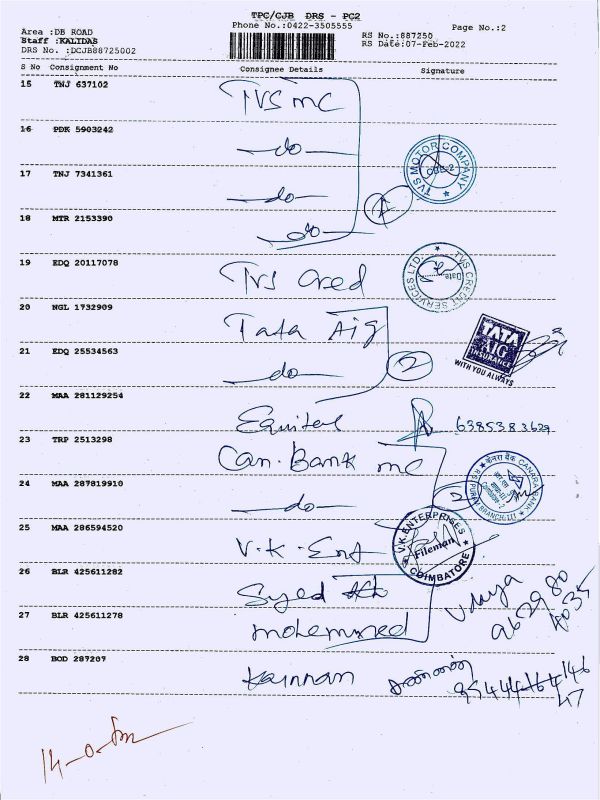 TPC/CJB DRS - PC2
Phone No.:0422-3505555
Page No.:2
Area :DB ROAD
Staff :KALIDAS
DRS No. :DCJB88725002
RS No.:887250
RS Date:07-Feb-2022
S No Consignment No Consignee Details Signature
15 TNJ 637102 TVS mc
16 PDK 5903242 -do-
17 TNJ 7341361 -do-
18 MTR 2153390 -do-
TVS MOTOR COMPANY
CBE-2
19 EDQ 20117078 TVS Cred
TVS CREDIT SERVICES LTD.
Date
20 NGL 1732909 Tata Aig
21 EDQ 25534563 -do- 2
TATA
AIG
INSURANCE
WITH YOU ALWAYS
22 MAA 281129254 6385383629
23 TRP 2513298 Can. Bank mc
24 MAA 287819910 -do- 2
केनरा बैंक CANARA BANK
25 MAA 286594520 V.K. Ent
V.K ENTERPRISES
Fileman
COIMBATORE
26 BLR 425611282 Syed
27 BLR 425611278
28 BOD 287207 Kannan